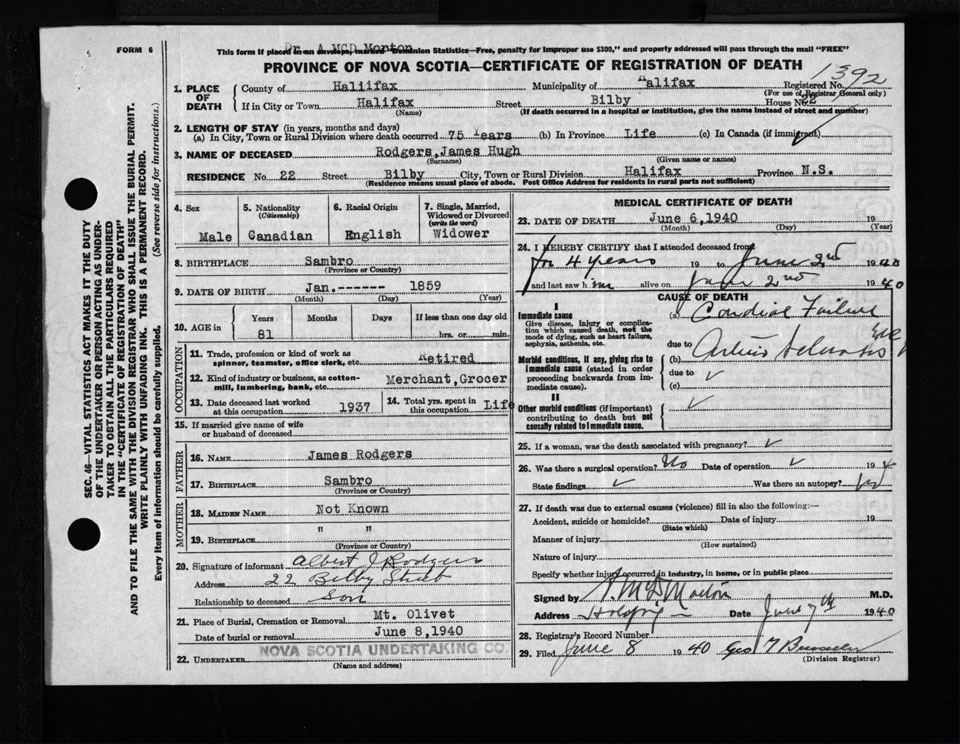 Dr A MCD Morton
FORM 6
This form if placed in an envelope, marked "Dominion Statistics—Free, penalty for improper use $300," and properly addressed will pass through the mail "FREE"
PROVINCE OF NOVA SCOTIA—CERTIFICATE OF REGISTRATION OF DEATH
1392
1. PLACE OF DEATH
County of Haliifax Municipality of Halifax Registered No.
(For use of Registrar General only)
If in City or Town Halifax Street Bilby House No. 22
(Name) (If death occurred in a hospital or institution, give the name instead of street and number)
2. LENGTH OF STAY (in years, months and days)
(a) In City, Town or Rural Division where death occurred 75 Years (b) In Province Life (c) In Canada (if immigrant)
3. NAME OF DECEASED Rodgers, James Hugh
(Surname) (Given name or names)
RESIDENCE No. 22 Street Bilby City, Town or Rural Division Halifax Province N.S.
(Residence means usual place of abode. Post Office Address for residents in rural parts not sufficient)
4. Sex Male
5. Nationality (Citizenship) Canadian
6. Racial Origin English
7. Single, Married, Widowed or Divorced (write the word) Widower
8. BIRTHPLACE Sambro
(Province or Country)
9. DATE OF BIRTH Jan.------- 1859
(Month) (Day) (Year)
10. AGE in Years Months Days If less than one day old
81 hrs. or min.
OCCUPATION
11. Trade, profession or kind of work as spinner, teamster, office clerk, etc. Retired
12. Kind of industry or business, as cotton-mill, lumbering, bank, etc. Merchant, Grocer
13. Date deceased last worked at this occupation 1937
14. Total yrs. spent in this occupation Life
15. If married give name of wife or husband of deceased
FATHER
16. NAME James Rodgers
17. BIRTHPLACE Sambro
(Province or Country)
MOTHER
18. MAIDEN NAME Not Known
19. BIRTHPLACE " "
(Province or Country)
20. Signature of informant Albert J Rodgers
Address 22 Bilby Street
Relationship to deceased Son
21. Place of Burial, Cremation or Removal Mt. Olivet
Date of burial or removal June 8,1940
22. UNDERTAKER NOVA SCOTIA UNDERTAKING CO.
(Name and address)
MEDICAL CERTIFICATE OF DEATH
23. DATE OF DEATH June 6,1940 19
(Month) (Day) (Year)
24. I HEREBY CERTIFY that I attended deceased from
for 4 years 19 to June 2nd 1940
and last saw him alive on June 2nd 1940
CAUSE OF DEATH
I
Immediate cause
Give disease, injury or complication which caused death, not the mode of dying, such as heart failure, asphyxia, asthenia, etc.
(a) Cardiac Failure
due to
(b)
Morbid conditions, if any, giving rise to immediate cause (stated in order proceeding backwards from immediate cause).
due to
(c)
II
Other morbid conditions (if important) contributing to death but not causally related to immediate cause.
25. If a woman, was the death associated with pregnancy?
26. Was there a surgical operation? No Date of operation 19
State findings Was there an autopsy?
27. If death was due to external causes (violence) fill in also the following:—
Accident, suicide or homicide? Date of injury 19
(State which)
Manner of injury
(How sustained)
Nature of injury
Specify whether injury occurred in industry, in home, or in public place
Signed by A. McD Morton M.D.
Address Halifax Date June 7th 1940
28. Registrar's Record Number
29. Filed June 8 1940 Geo
(Division Registrar)
SEC. 46—VITAL STATISTICS ACT MAKES IT THE DUTY
OF THE UNDERTAKER OR PERSON ACTING AS UNDER-
TAKER TO OBTAIN ALL THE PARTICULARS REQUIRED
IN THE "CERTIFICATE OF REGISTRATION OF DEATH"
AND TO FILE THE SAME WITH THE DIVISION REGISTRAR WHO SHALL ISSUE THE BURIAL PERMIT.
WRITE PLAINLY WITH UNFADING INK. THIS IS A PERMANENT RECORD.
Every item of information should be carefully supplied. (See reverse side for instructions.)